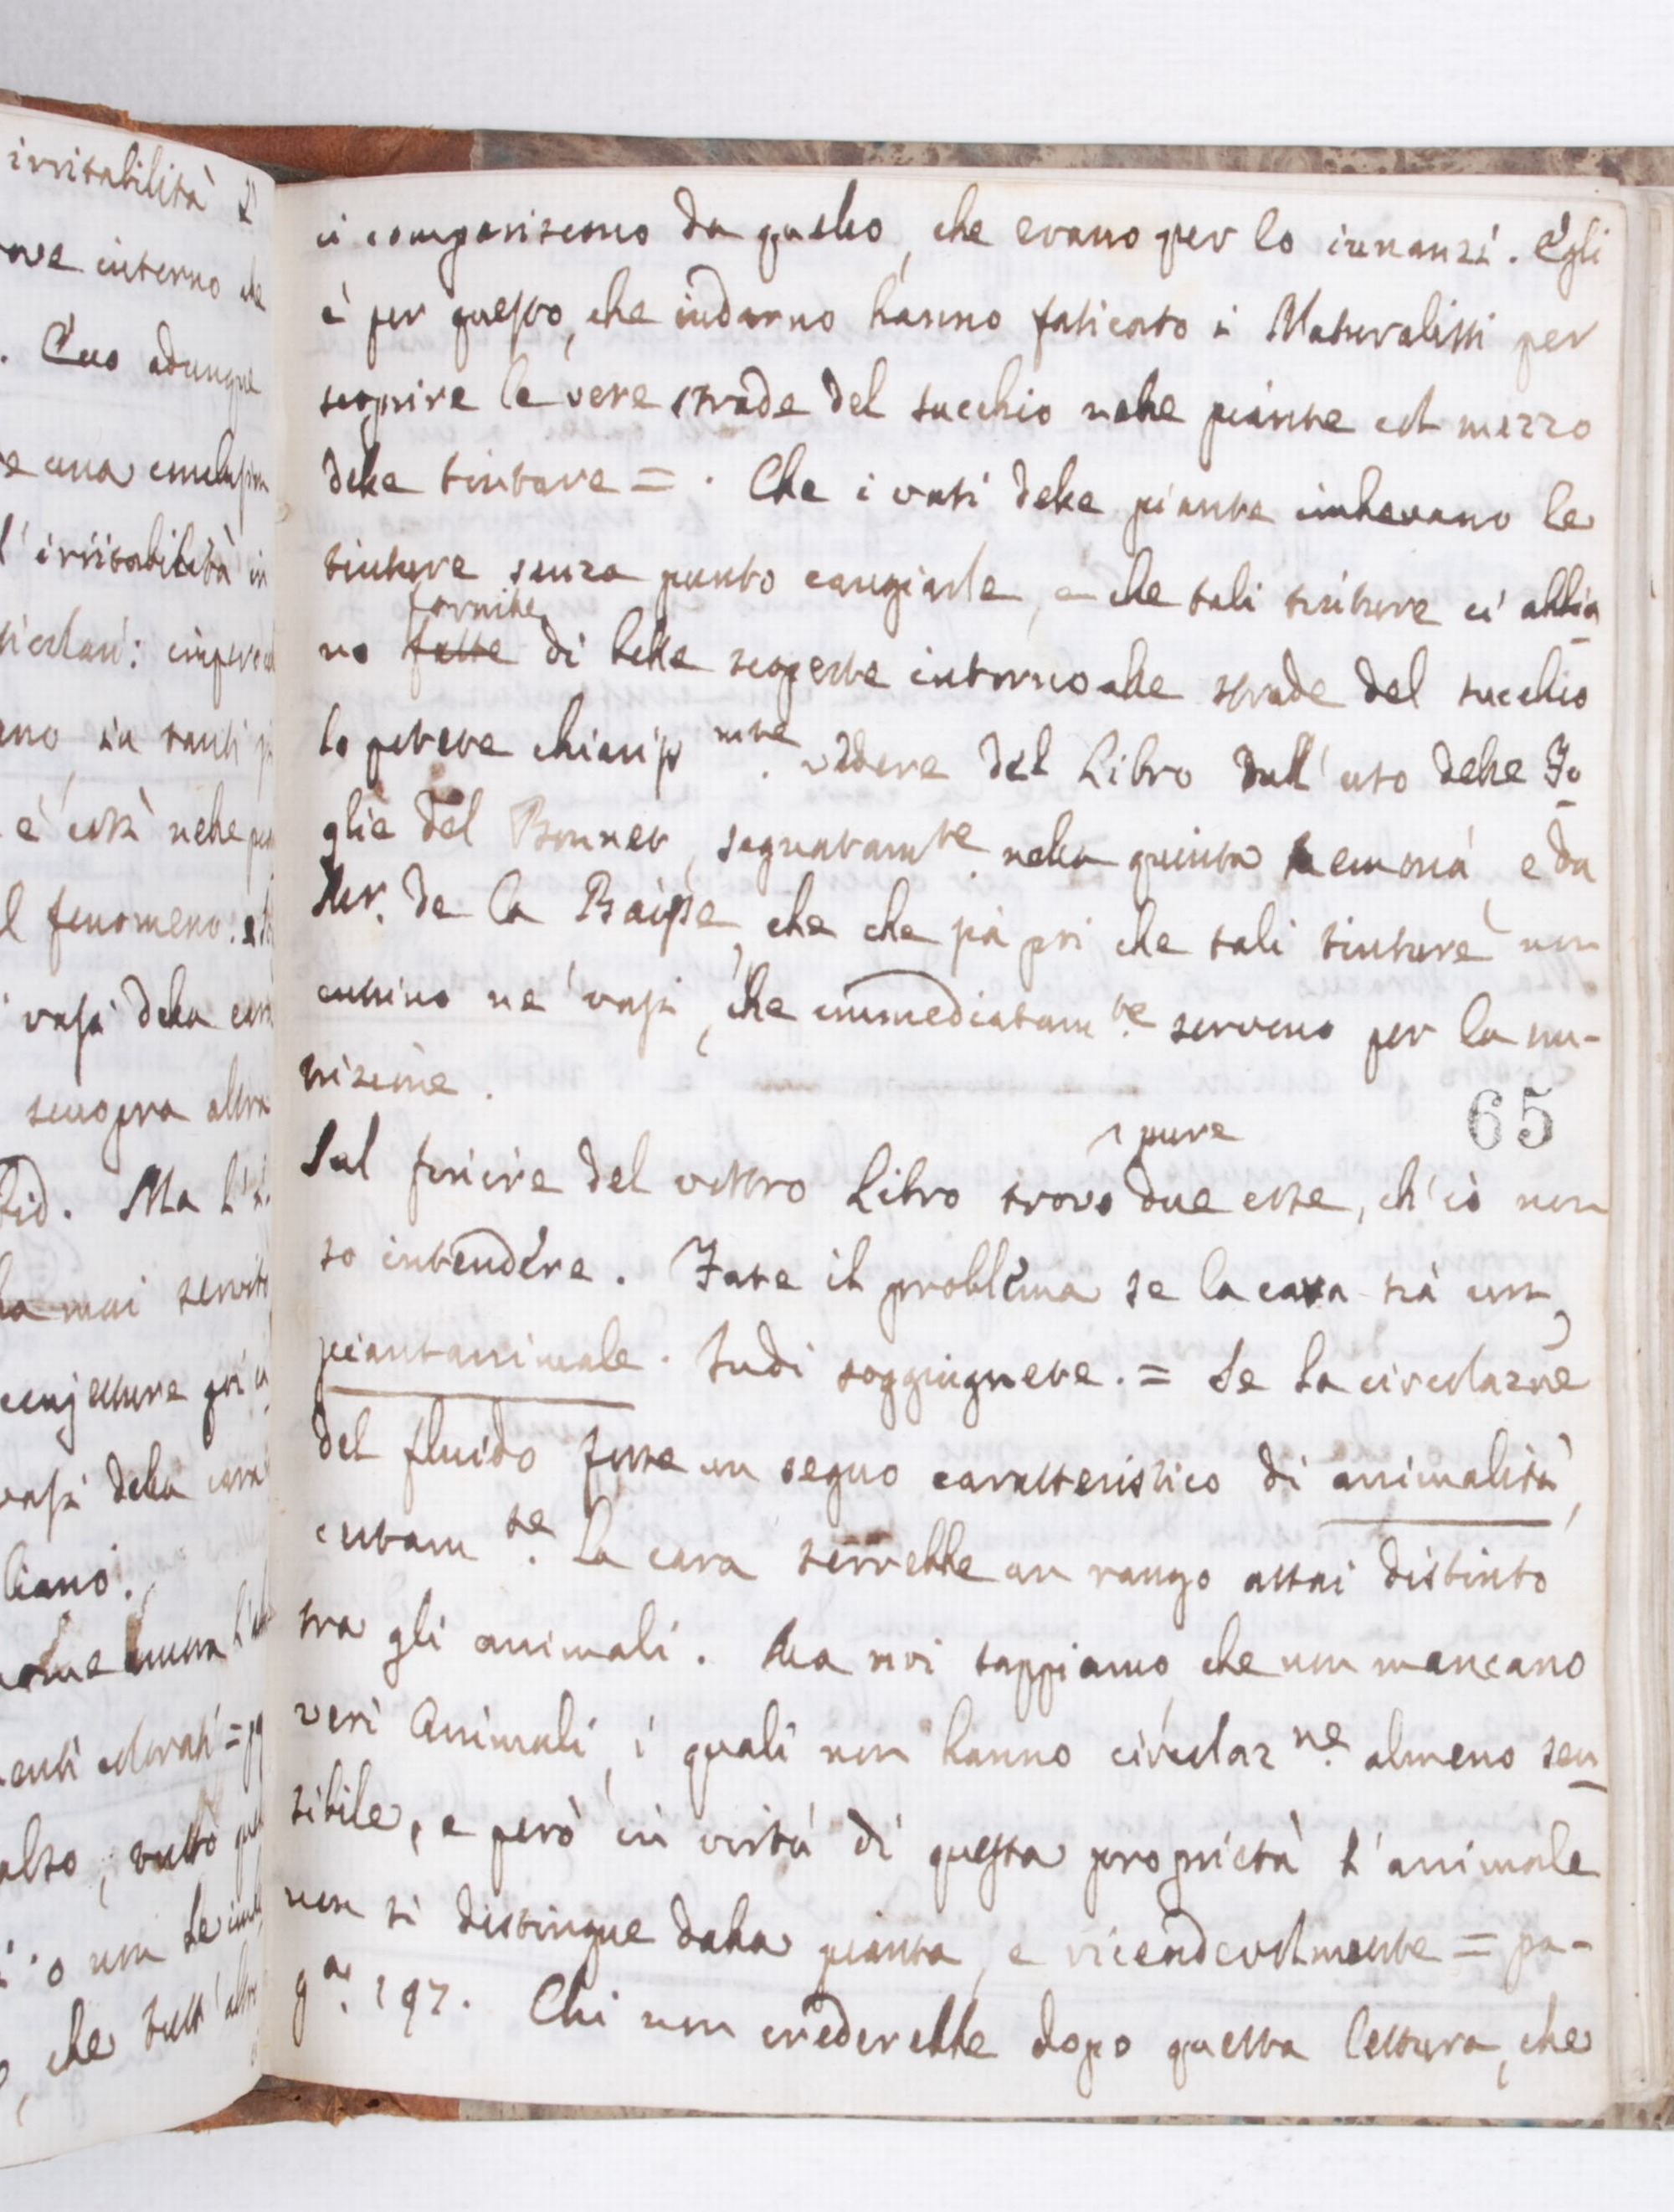 irritabilità
interno che
. Ciò adunque
e una
l'irritabilità in

e così nelle
l fenomeno: e
vasi della
scuopra altra
. Ma l'
mai servito
conjetture
vasi della cara
liano.

colorati =
alto;
o non
, che tutt'altro
ci compariscono da quello, che erano per lo innanzi. Egli
è per questo, che indarno hanno faticato i Naturalisti per
scoprire le vere strade del succhio nelle piante col mezzo
delle tinture = . Che i vasi delle piante imbevano le
tinture senza punto cangiarle, e che tali tinture ci abbia
fornite
no fatte di belle scoperte intorno alle strade del succhio
lo potete chiariss.mte vedere del Libro dell'uso delle Fo
glie del Bonnet, segnatamte nella quinta memoria, e da
Mr. de la Baisse, che che sia poi che tali tinture non
entrino ne' vasi, che immediatamte servono per la nu-
trizione.
65
pure
Sul finire del vostro Libro trovo due cose, ch'io non
so intendere. Fate il problema se la cara sia un
piantanimale. Indi soggiugnete. = Se la circolazne
del fluido fosse un segno caratteristico di animalità,
certamte la cara terrebbe un rango assai distinto
tra gli animali. Ma noi sappiamo che non mancano
veri Animali, i quali non hanno circolazne almeno sen
sibile, e però in virtù di questa proprietà l'animale
non si distingue dalla pianta, e vicendevolmente = pa-
ga. 197. Chi non crederebbe dopo questa lettura, che